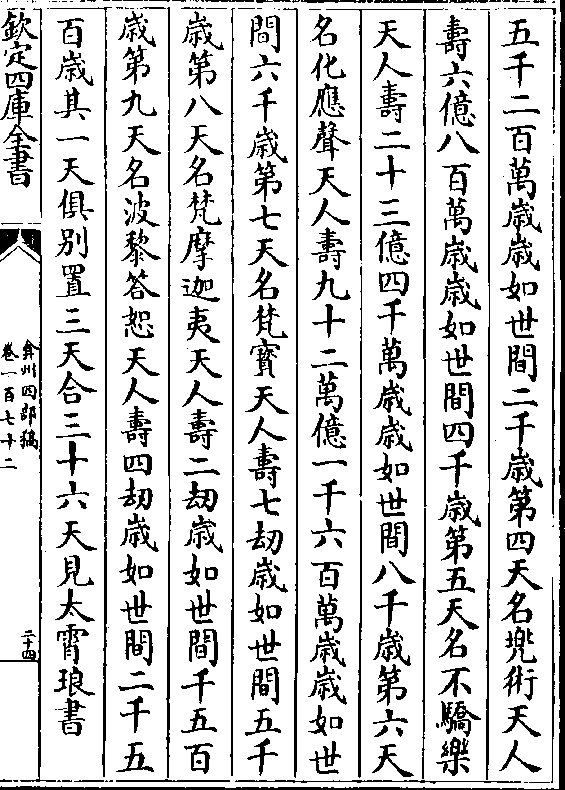 五千二百萬歳歳如世間二千歳第四天名兠術天人
壽六億八百萬歳歳如世間四千歳第五天名不驕樂
天人壽二十三億四千萬歳歳如世間八千歳第六天
名化應聲天人壽九十二萬億一千六百萬歳歳如世
間六千歳第七天名梵寳天人壽七刼歳如世間五千
歳第八天名梵摩迦夷天人壽二刼歳如世間千五百
歳第九天名波黎答恕天人壽四刼歳如世間二千五
百歳其一天俱别置三天合三十六天見太霄琅書
欽定四庫全書
弇州四部稿
卷一百七十二
二十四